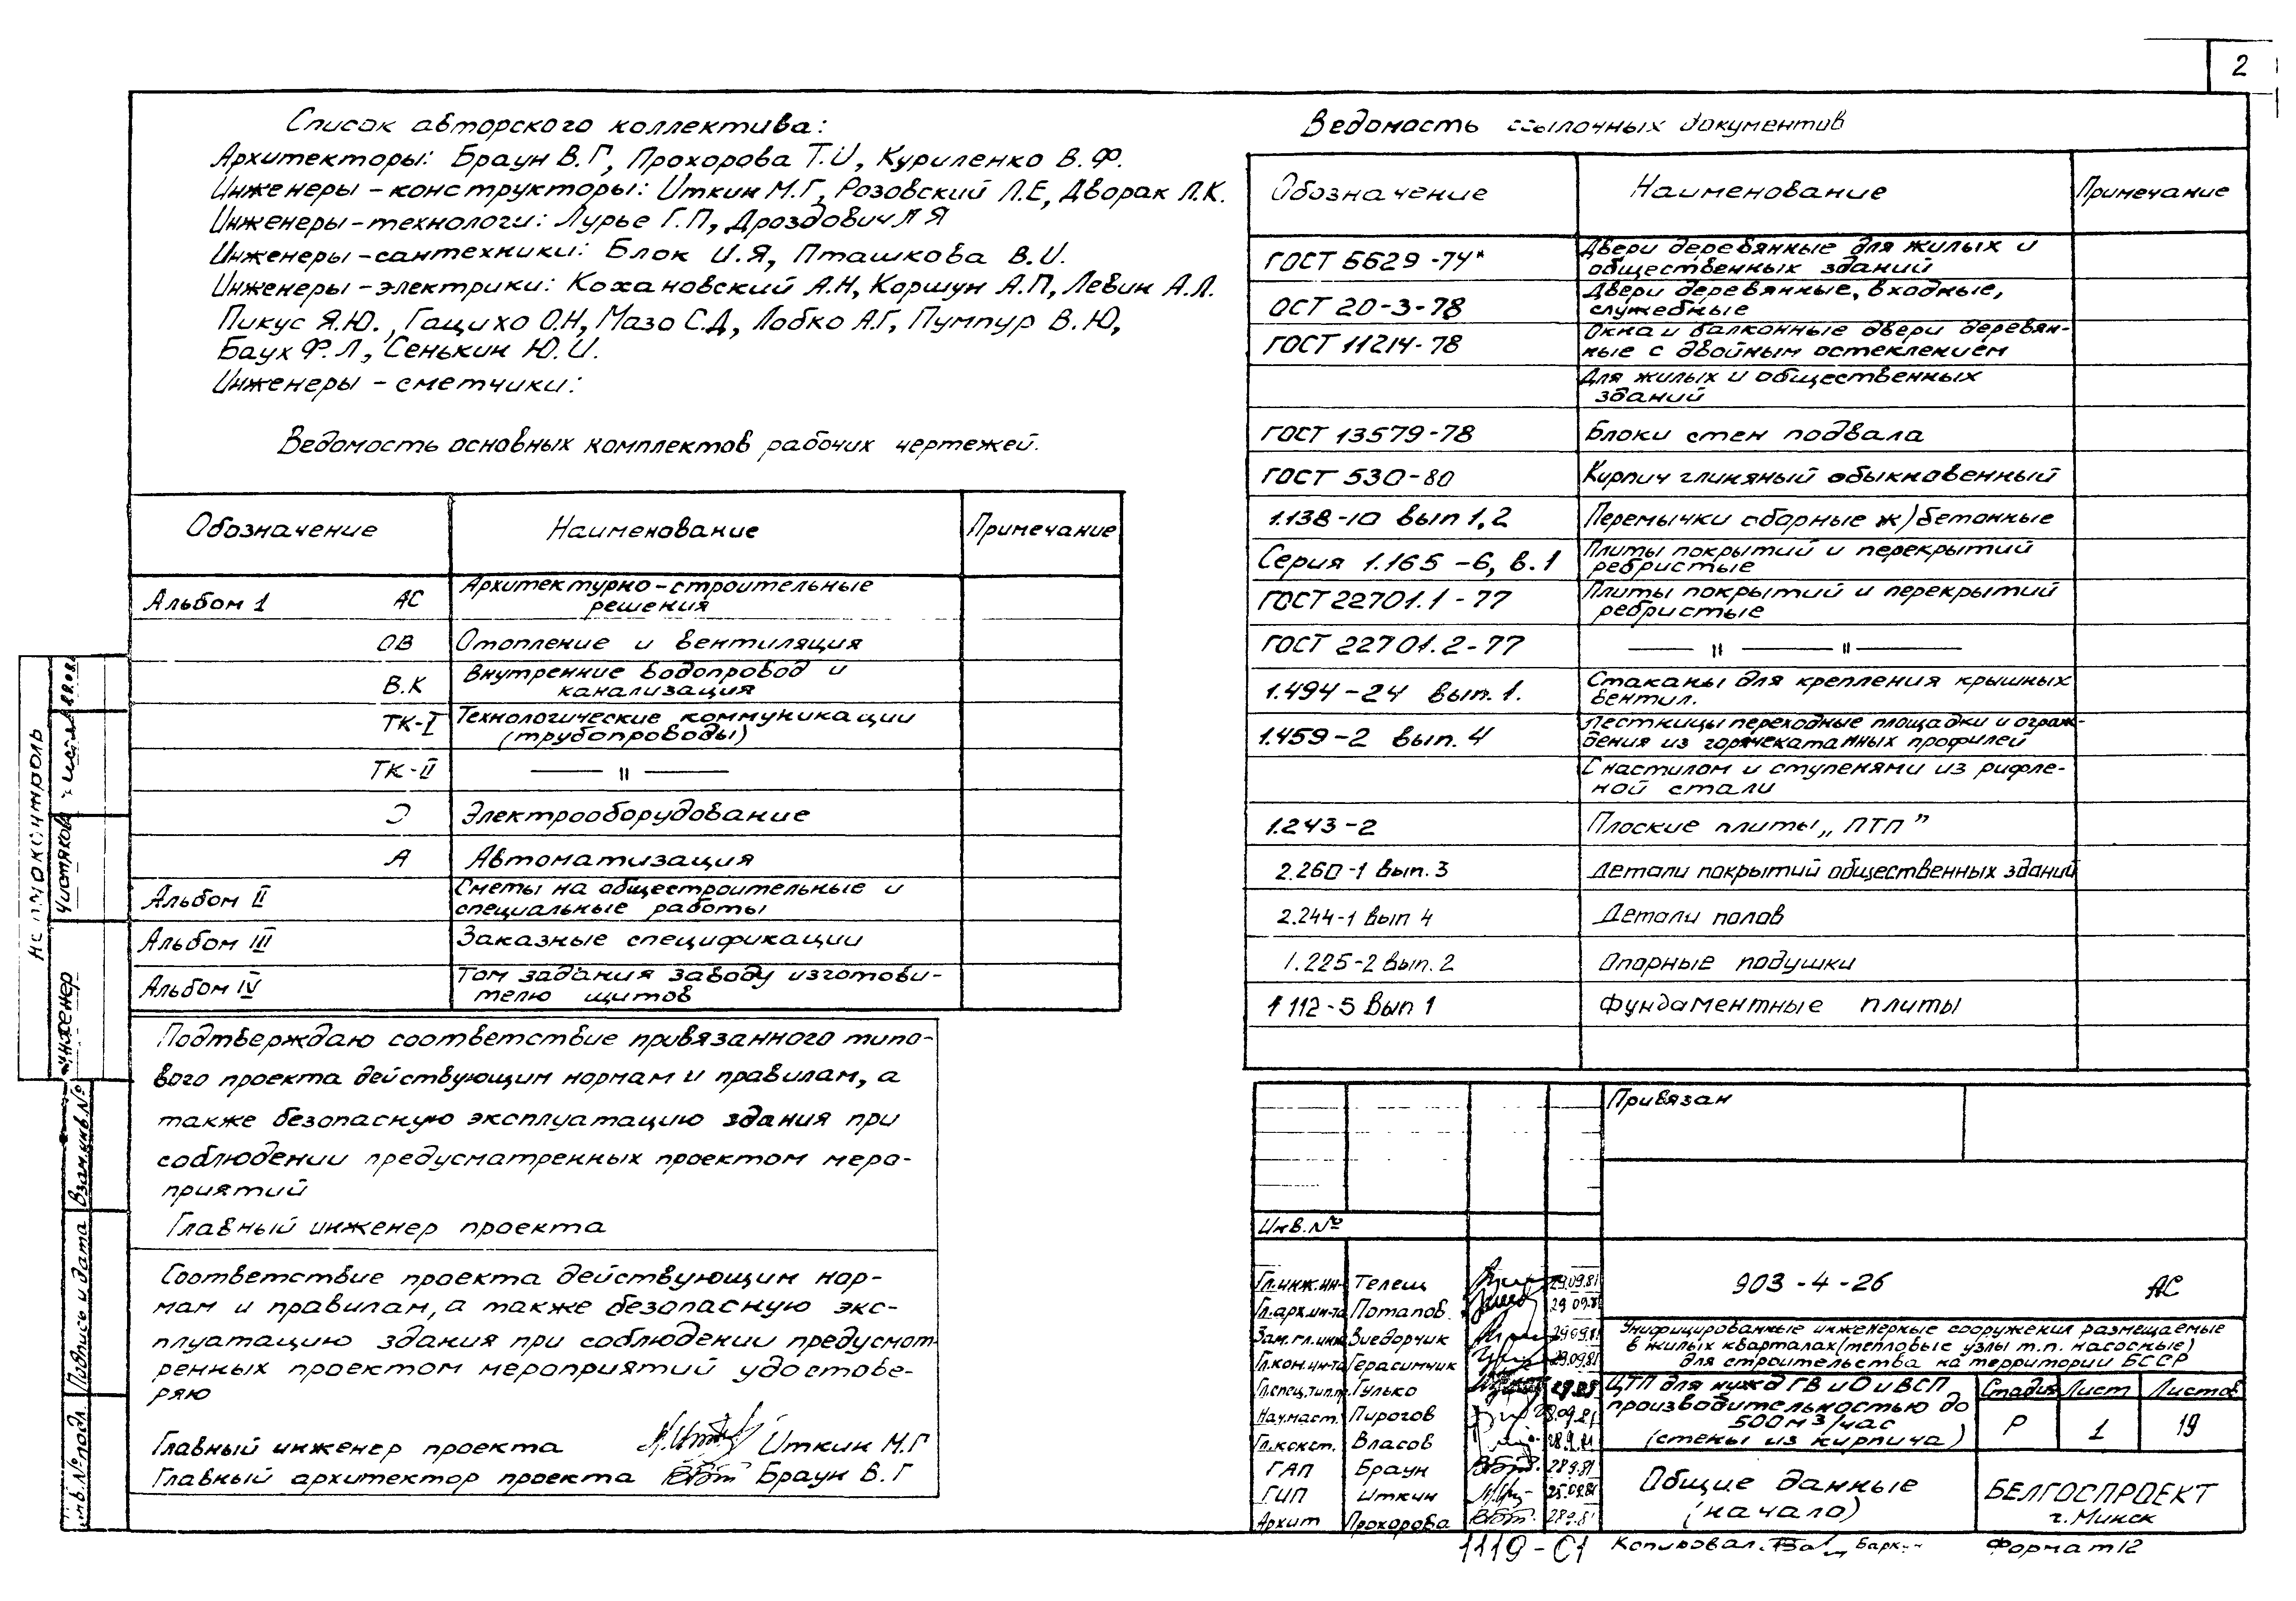 2
Список авторского коллектива:
Архитекторы: Браун В.Г, Прохорова Т.И, Куриленко В.Ф.
Инженеры-конструкторы: Иткин М.Г, Розовский Л.Е, Дворак Л.К.
Инженеры-технологи: Лурье Г.П, Дроздович Л Я
Инженеры-сантехники: Блок И.Я, Пташкова В.И.
Инженеры-электрики: Кохановский А.Н, Коршун А.П, Левин А.Л.
Пикус Я.Ю., Гащихо О.Н, Мазо С.Д, Лобко А.Г, Пумпур В.Ю,
Баух Ф.Л, Сенькин Ю.И.
Инженеры-сметчики:
Ведомость основных комплектов рабочих чертежей.
Обозначение Наименование Примечание
Альбом 1 АС Архитектурно-строительные
решения
ОВ Отопление и вентиляция
В.К Внутренние водопровод и
канализация
ТК-I Технологические коммуникации
(трубопроводы)
ТК-II — " —
Э Электрооборудование
А Автоматизация
Альбом II Сметы на общестроительные и
специальные работы
Альбом III Заказные спецификации
Альбом IV Том задания заводу изготови-
телю щитов
Подтверждаю соответствие привязанного типо-
вого проекта действующим нормам и правилам, а
также безопасную эксплуатацию здания при
соблюдении предусматренных проектом меро-
приятий
Главный инженер проекта
Соответствие проекта действующим нор-
мам и правилам, а также безопасную экс-
плуатацию здания при соблюдении предусмот-
ренных проектом мероприятий удостове-
ряю
Главный инженер проекта Иткин М.Г
Главный архитектор проекта Браун В.Г
Ведомость ссылочных документов
Обозначение Наименование Примечание
ГОСТ 6629-74* Двери деревянные для жилых и
общественных зданий
ОСТ 20-3-78 Двери деревянные, входные,
служебные
ГОСТ 11214-78 Окна и балконные двери деревян-
ные с двойным остеклением
Для жилых и общественных
зданий
ГОСТ 13579-78 Блоки стен подвала
ГОСТ 530-80 Кирпич глиняный обыкновенный
1.138-10 вып 1,2 Перемычки сборные ж/бетонные
Серия 1.165-6, в.1 Плиты покрытий и перекрытий
ребристые
ГОСТ 22701.1-77 Плиты покрытий и перекрытий
ребристые
ГОСТ 22701.2-77 — " — " —
1.494-24 вып.1. Стаканы для крепления крышных
вентил.
1.459-2 вып.4 Лестницы переходные площадки и ограж-
дения из горячекатанных профилей
С настилом и ступенями из рифле-
ной стали
1.243-2 Плоские плиты „ПТП”
2.260-1 вып.3 Детали покрытий общественных зданий
2.244-1 вып 4 Детали полов
1.225-2 вып.2 Опорные подушки
1 112-5 Вып 1 Фундаментные плиты
Привязан
Инв.№
Гл.инж.ин- Телеш 29.09.81
Гл.арх.ин-та Потапов 29 09.81
Зам.гл.инж 29.09.81
Гл.кон.ин-та Герасимчик 29.09.81
Гл.спец.тип.пр Гулько
Нач.маст. Пирогов 28.09.81
Гл.конст. Власов 28.9.81
ГАП Браун 28 9.81
ГИП Иткин 25.09.81
Архит Прохорова 28 9.81
903-4-26 АС
Унифицированные инженерные сооружения размещаемые
в жилых кварталах (тепловые узлы т.п. насосные)
для строительства на территории БССР
ЦТП для нужд ГВ и О и ВСП
производительностью до
500 м³/час
(стены из кирпича)
Стадия Лист Листов
Р 1 19
Общие данные
(начало)
БЕЛГОСПРОЕКТ
г.Минск
1119-01 Копировал. Формат 12
Нормоконтроль
Инженер Чистякова
Взам.инв.№
Подпись и дата
Инв.№ подл